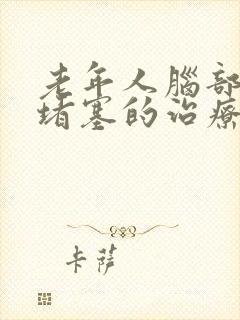 老年人腦部
堵塞的治療
卡薩